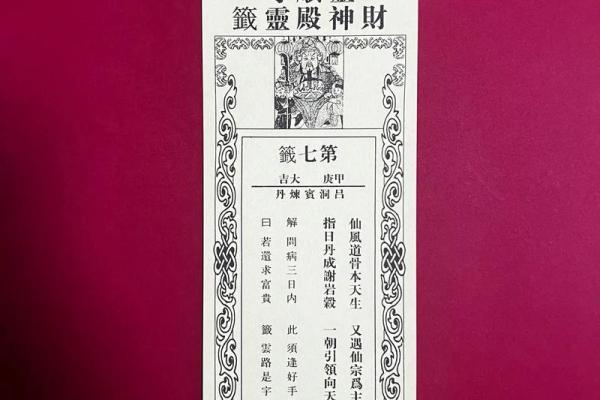 財神殿靈籤
第七籤
甲庚 大吉
呂洞賓煉丹
仙風道骨本天生 又遇仙宗爲主
指日丹成謝岩穀 一朝引領向天
解 問病三日内 此須逢好手
曰 若還求富貴 籤雲路是宇